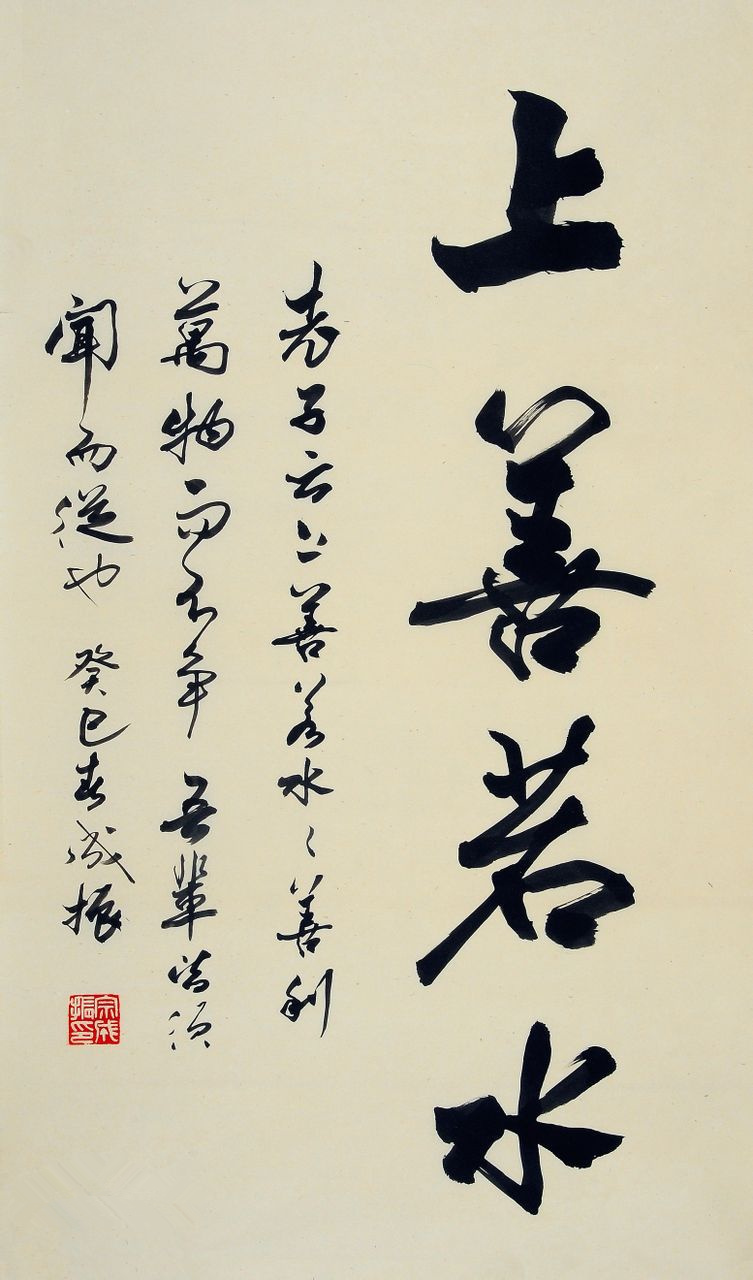 上善若水
老子云上善若水〻善利
萬物而不争吾輩當須
聞而從也 癸巳春成振
宗成振印